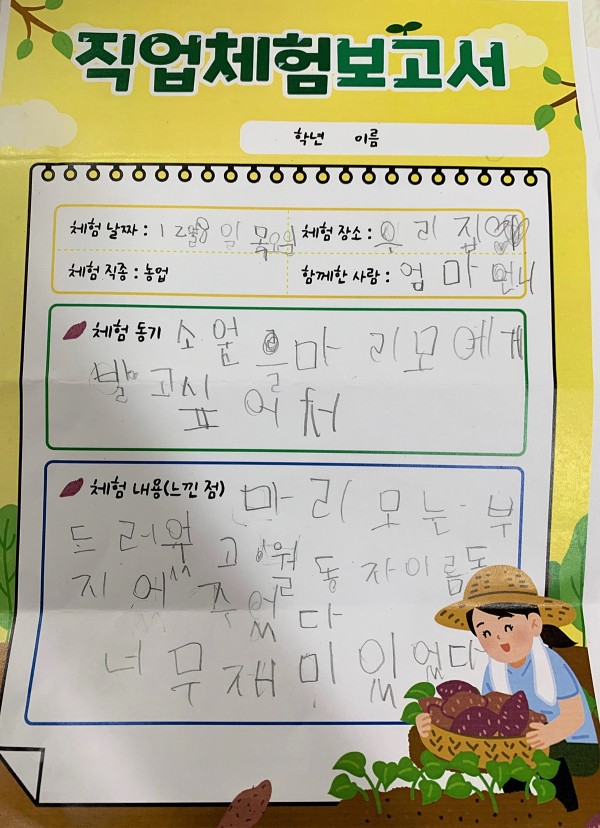 직업체험보고서
학년 이름
체험 날짜 : 12월8일 목요일 체험 장소 : 우리집
체험 직종 : 농업 함께한 사람 : 엄마 언니
체험 동기 소 을마리모에게
발고싶어서
체험 내용(느낀 점) 마리모는 부
드러웠고 동자이름도
지어주었다
너무재미있었다